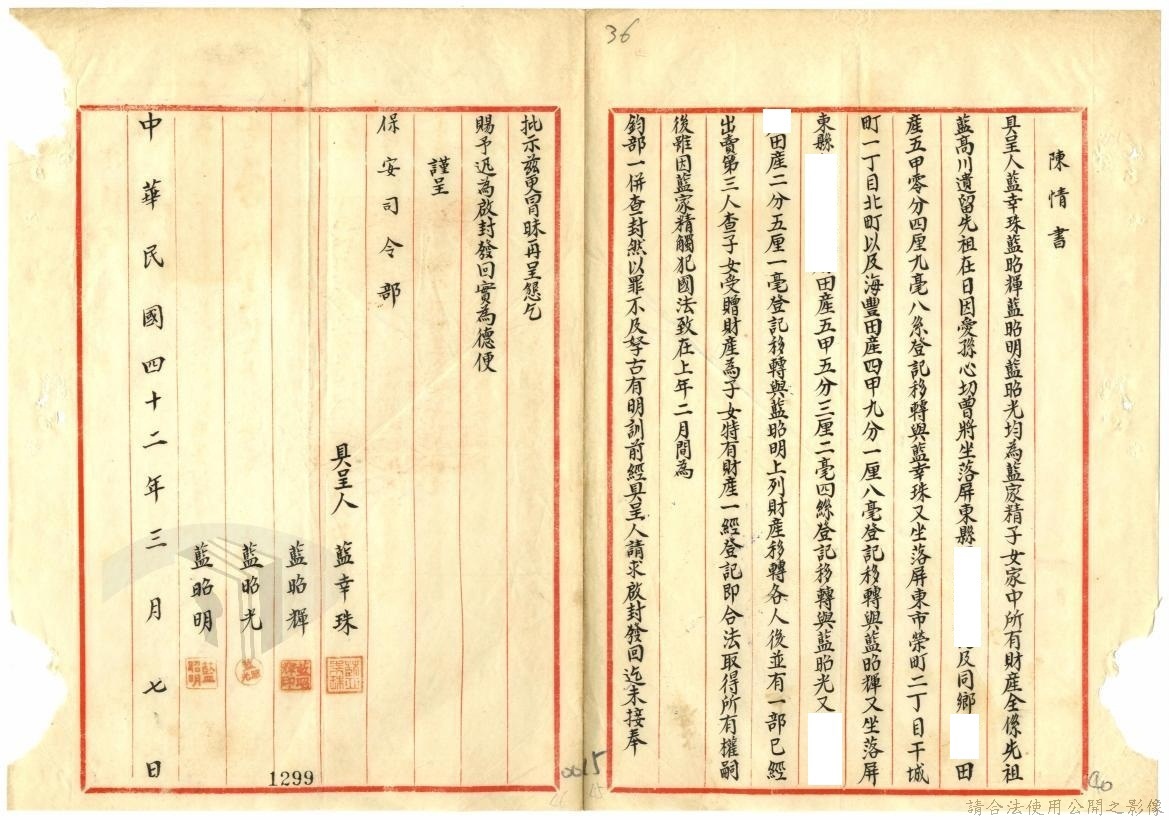 36
陳情書
具呈人藍幸珠藍昭輝藍昭明藍昭光均為藍家精子女家中所有財產全係先祖
藍高川遺留先祖在日因愛孫心切曾將坐落屏東縣
及同鄉
田
產五甲零分四厘九毫八糸登記移轉與藍幸珠又坐落屏東市榮町二丁目干城
町一丁目北町以及海豐田產四甲九分一厘八毫登記移轉與藍昭輝又坐落屏
東縣
田產五甲五分三厘二毫四絲登記移轉與藍昭光又
田產二分五厘一毫登記移轉與藍昭明上列財產移轉各人後並有一部已經
出賣第三人查子女受贈財產為子女特有財產一經登記即合法取得所有權嗣
後雖因藍家精觸犯國法致在上年二月間為
鈞部一併查封然以罪不及孥古有明訓前經具呈人請求啟封發回迄未接奉
批示茲更冒昧再呈懇乞
賜予迅為啟封發回實為德便
謹呈
保安司令部
具呈人 藍幸珠
藍昭輝
藍昭光
藍昭明
中華民國四十二年三月七日
1299
0015
請合法使用公開之影像